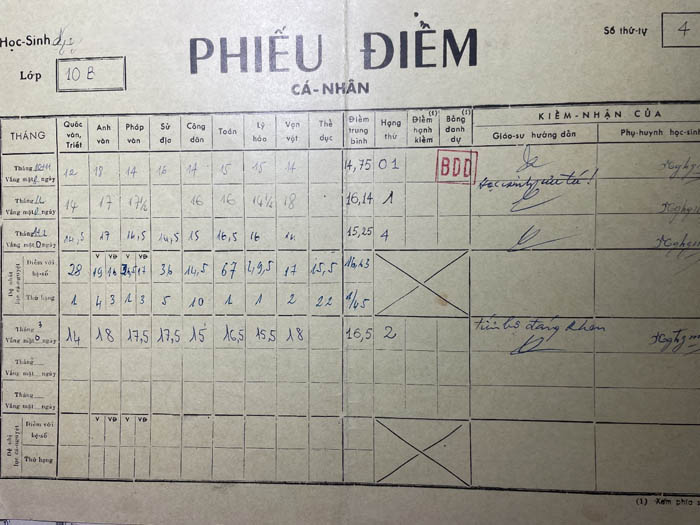 Học-Sinh
Số thứ-tự 4
PHIẾU ĐIỂM
Lớp 10 B
CÁ-NHÂN
THÁNG Quốc văn, Triết Anh văn Pháp văn Sử địa Công dân Toán Lý hóa Vạn vật Thể dục Điểm trung bình Hạng thứ Điểm hạnh kiểm (1) Bảng danh dự (1) KIỂM-NHẬN CỦA
Giáo-sư hướng dẫn Phụ-huynh học-sinh
Tháng 10+11 12 18 14 16 14 15 15 14 14,75 01 BDD
Vắng mặt ngày
Học sinh ưu tú!
Tháng 14 17 17½ 16 16 14½ 18 16,14 1
Vắng mặt ngày
Tháng 14,5 17 14,5 15 16,5 16 15,25 4
Vắng mặt 0 ngày
Đệ nhất lục cá-nguyệt
V VĐ V VĐ
Điểm với hệ-số 28 19 16 17 36 14,5 67 49,5 17 15,5 16,43
Thứ hạng 1 4 3 1 3 5 10 1 1 2 22 1/45
Tháng 3 14 18 17,5 17,5 15 16,5 15,5 18 16,5 2 tiến bộ đáng khen
Vắng mặt 0 ngày
Tháng
Vắng mặt ngày
Tháng
Vắng mặt ngày
Đệ nhị lục cá-nguyệt
V VĐ V VĐ
Điểm với hệ-số
Thứ hạng
(1) Xem phía